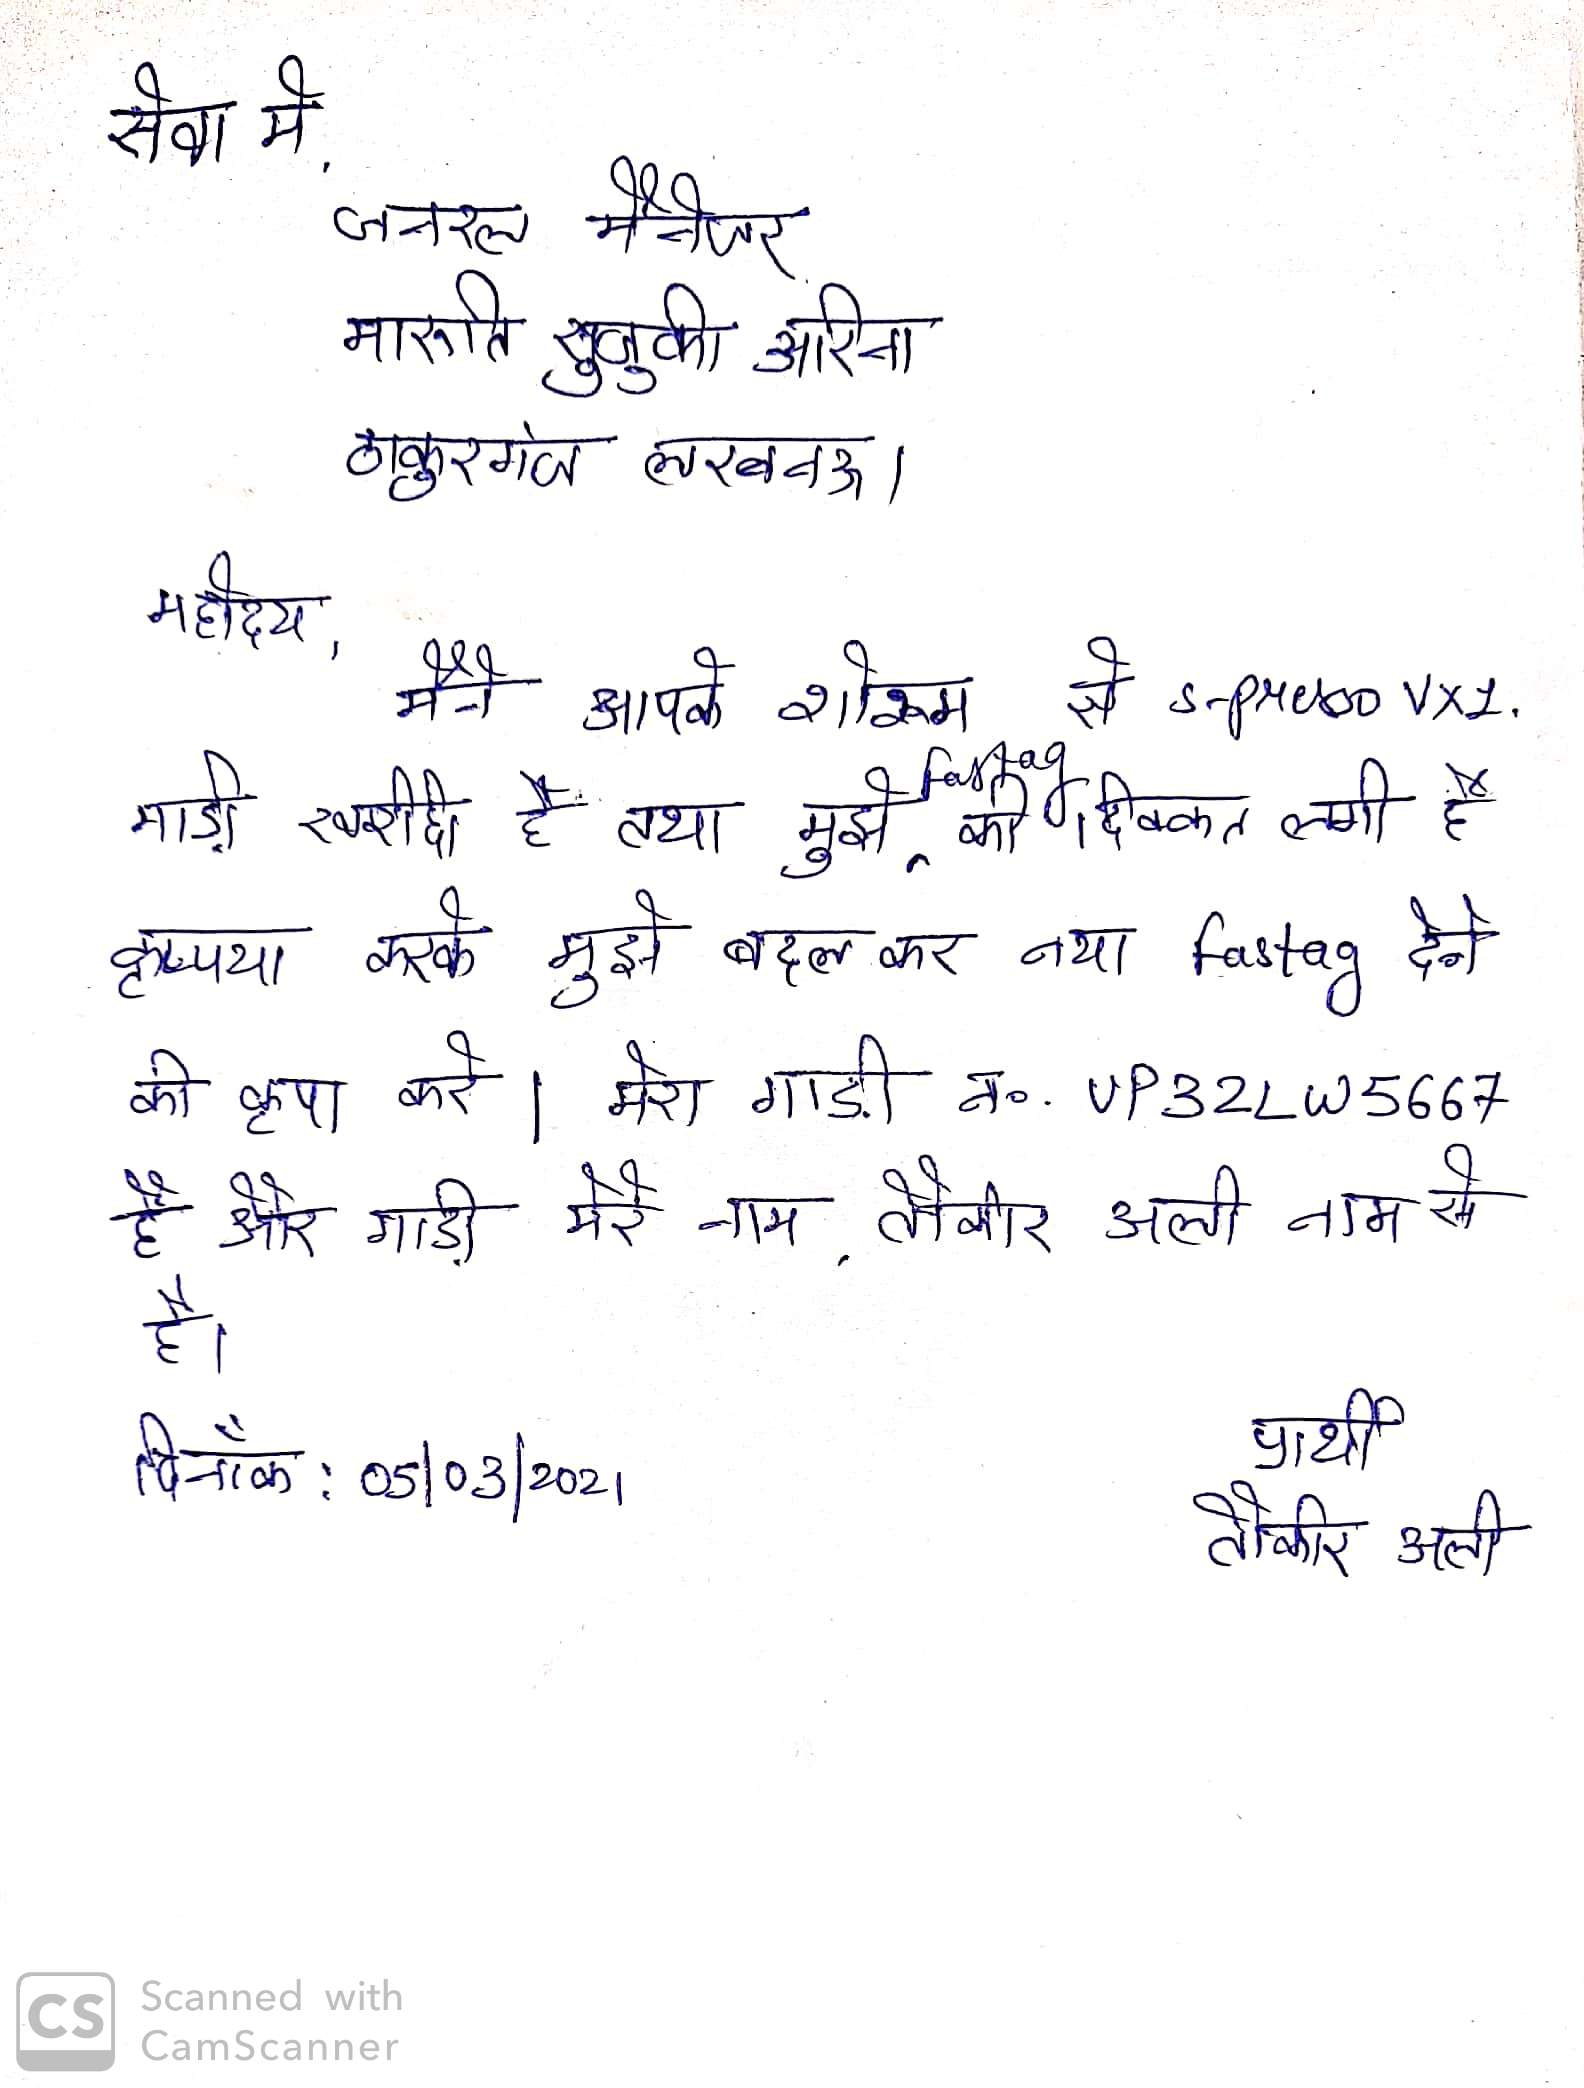 सेवा मे,
जनरल मैनेजर
मारूति सुजुकी अरिना
ठाकुरगंज लखनऊ।
महोदय,
मैने आपके शोरूम से s-presso VX1.
गाड़ी खरीदी है तथा मुझे fastag की दिक्कत लगी है
कृप्पया करके मुझे बदल कर नया fastag देने
की कृपा करे । मेरा गाडी नं०. UP32LW5667
है और गाड़ी मेरे नाम, तौकीर अली नाम से
है।
दिनाँक : 05/03/2021
प्रार्थी
तौकीर अली
CS Scanned with
CamScanner